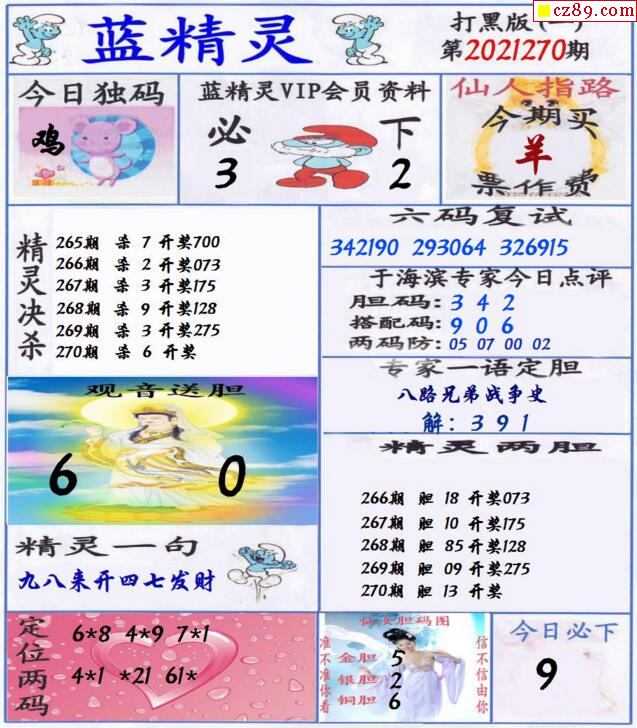 cz89.com
蓝精灵
打黑版(一)
第2021270期
今日独码
鸡
蓝精灵VIP会员资料
必 下
3 2
仙人指路
今期买
羊
票作费
精灵决杀
265期 杀 7 开奖700
266期 杀 2 开奖073
267期 杀 3 开奖175
268期 杀 9 开奖128
269期 杀 3 开奖275
270期 杀 6 开奖
六码复试
342190 293064 326915
于海滨专家今日点评
胆码: 3 4 2
搭配码: 9 0 6
两码防: 05 07 00 02
专家一语定胆
八路兄弟战争史
解: 3 9 1
观音送胆
6 0
精灵两胆
266期 胆 18 开奖073
267期 胆 10 开奖175
268期 胆 85 开奖128
269期 胆 09 开奖275
270期 胆 13 开奖
精灵一句
九八来开四七发财
定位两码
6*8 4*9 7*1
4*1 *21 61*
仙女胆码图
准不准你看
金胆 5
银胆 2
铜胆 6
信不信由你
今日必下
9